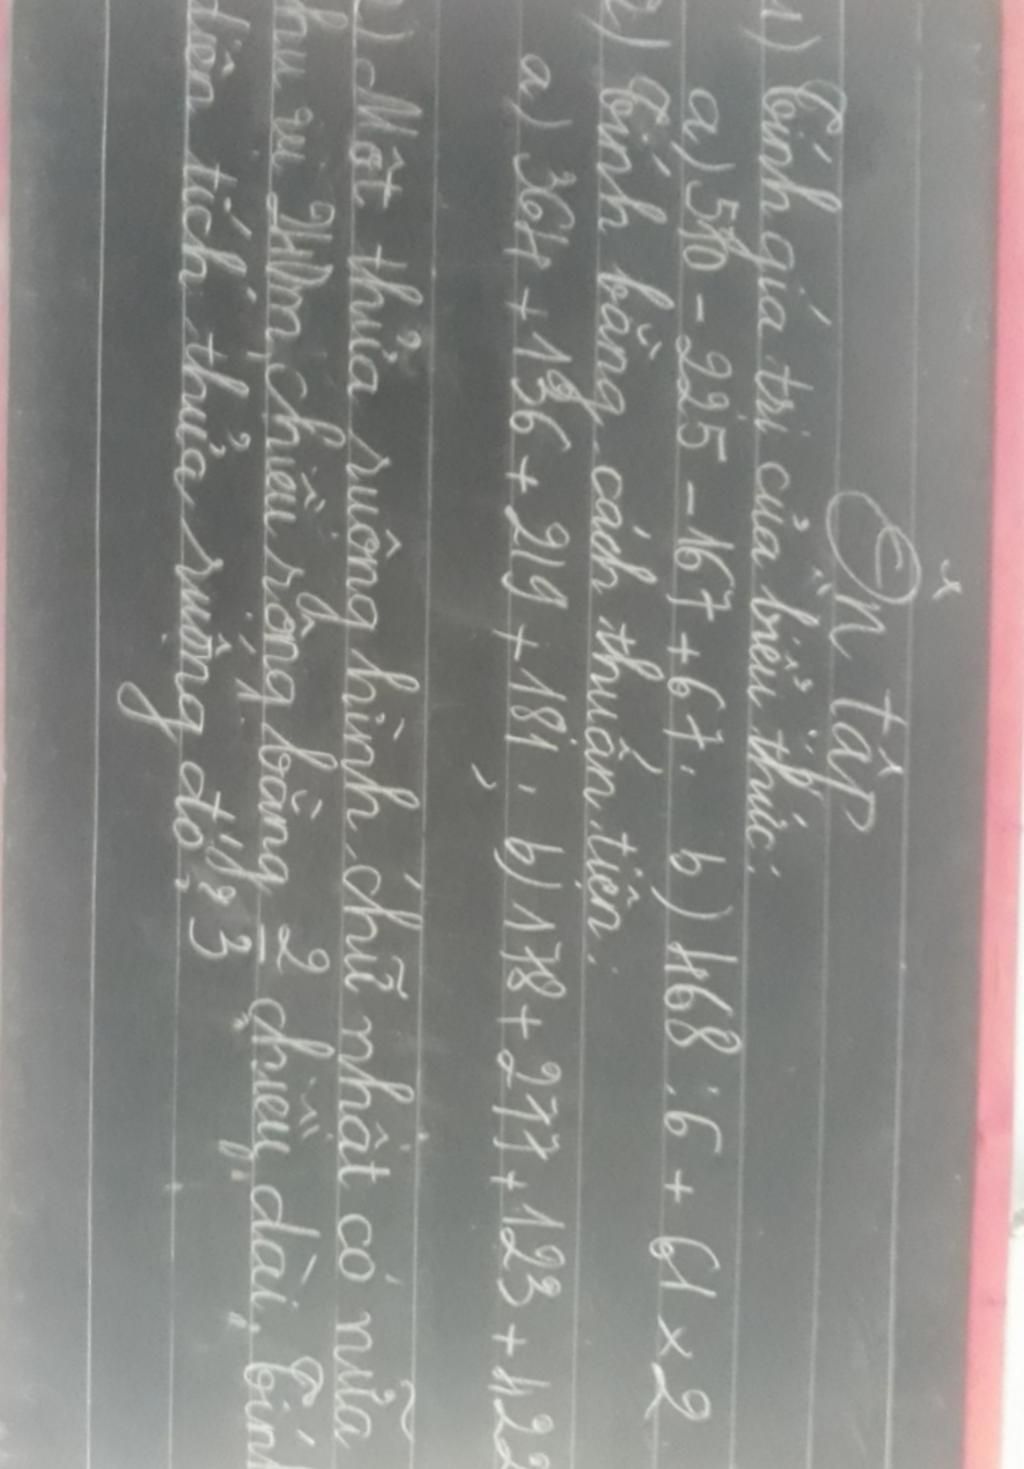 Ôn tập
1) Tính giá trị của biểu thức:
a) 570 - 225 - 167 + 67. b) 468 : 6 + 61 x 2
2) Tính bằng cách thuận tiện:
a) 364 + 136 + 219 + 181. b) 178 + 277 + 123 + 422
) Một thửa ruộng hình chữ nhật có nửa
hu vi m, chiều rộng bằng 2/3 chiều dài. Tính
diện tích thửa ruộng đó?